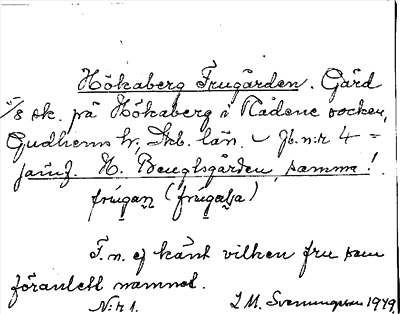 Hökaberg Frugården. Gård
5/8 sk. på Hökaberg i Kådene socken,
Gudhems hr, Skb. län. – Jb. n:r 4 =
jämf. H. Bengtsgården, samma!
frúgan (frúgaḷa)
F. n. ej känt vilken fru som
föranlett namnet.
N:r 1. I. M. Svenungsson 1949.